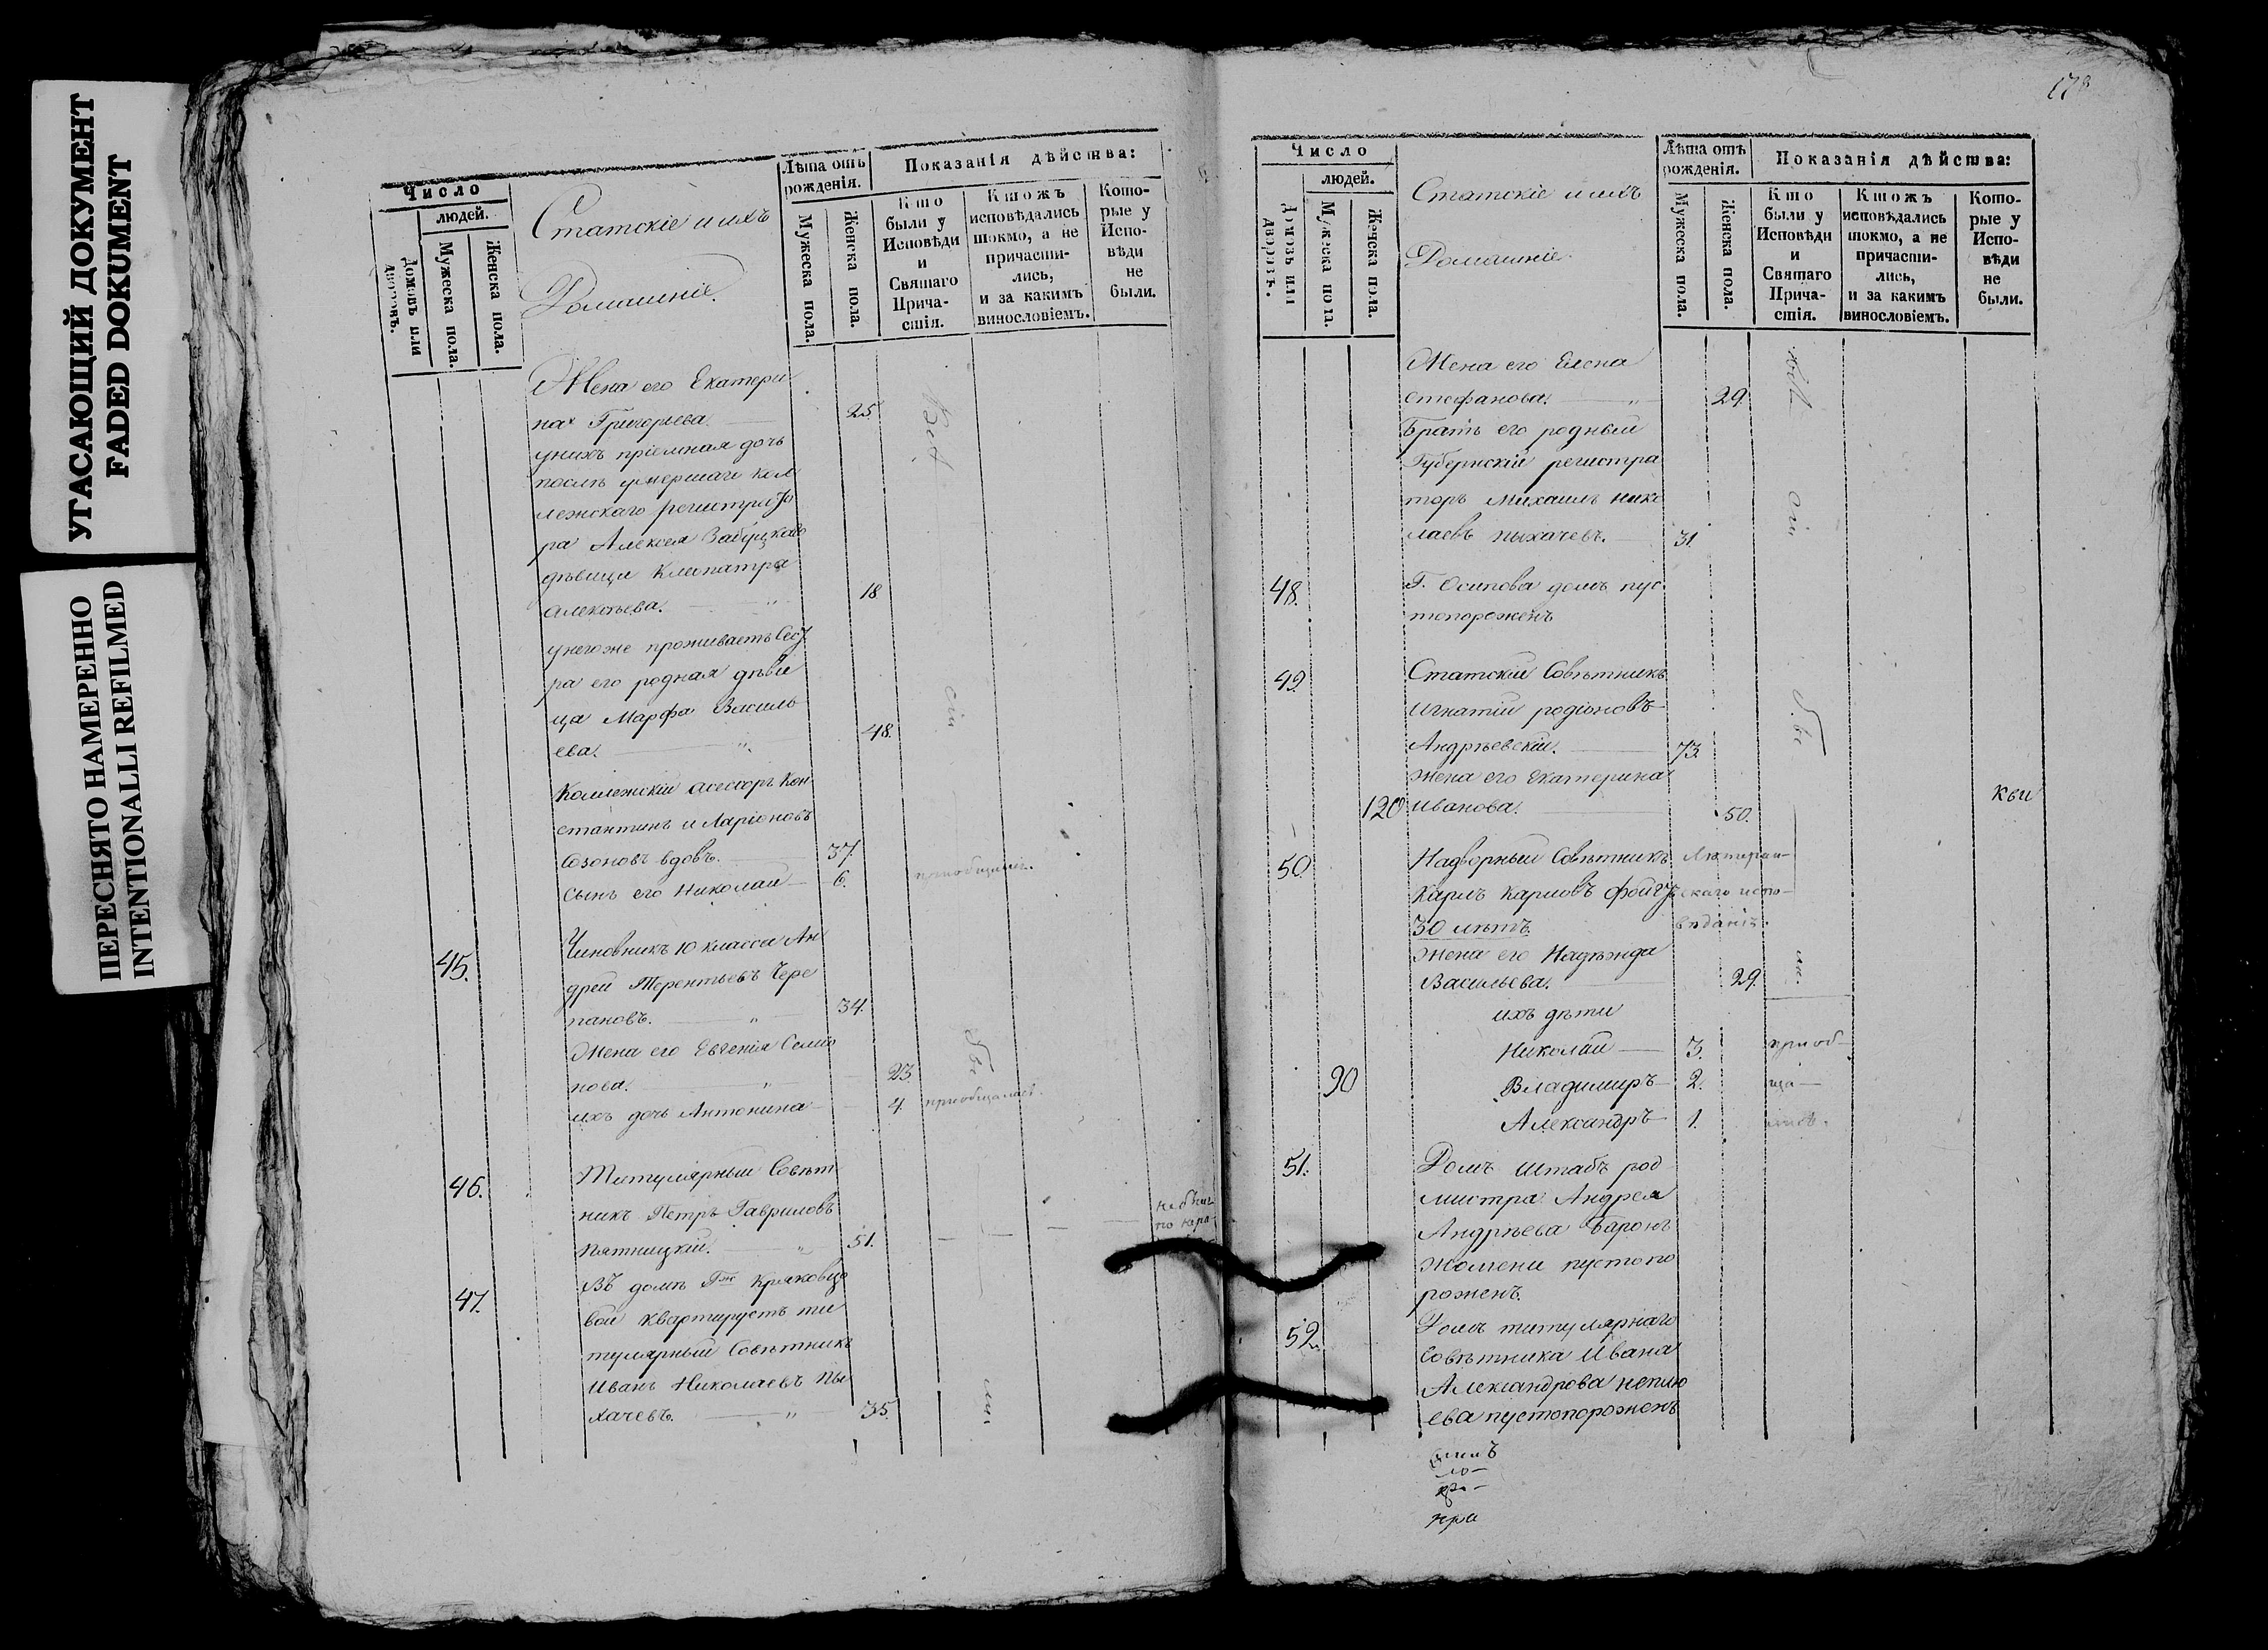 УГАСАЮЩИЙ ДОКУМЕНТ
FADED DOKUMENT
ПЕРЕСНЯТО НАМЕРЕННО
INTENTIONALLI REFILMED
Число
людей.
Домовъ или дворовъ.
Мужеска пола.
Женска пола.
Статскіе и ихъ
Домашніе.
Лѣта отъ рожденія.
Мужеска пола.
Женска пола.
Показанія дѣйства:
Кто были у Исповѣди и Святаго Причастія.
Ктожъ исповѣдались токмо, а не причастились, и за какимъ винословіемъ.
Которые у Исповѣди не были.
Жена его Екатери
на Григорьева. 25
унихъ пріемная дочь
послѣ умершаго кол
лежскаго регистрато
ра Алексея
дѣвица Клеопатра
Алексѣева. 18
унегоже проживаетъ Сест
ра его родная дѣви
ца Марфа Василь
ева. 48.
Коллежскій асесоръ Кон
стантинъ Иларіоновъ
Созоновъ вдовъ. 37.
Сынъ его Николай 6. приобщался.
45. Чиновникъ 10 класса Ан
дрей Терентьевъ Чере
пановъ. 34.
Жена его Евгенія Семіо
нова. 23
ихъ дочь Антонина 4 приобщалась.
46. Титулярный Совѣт
никъ Петръ Гавриловъ
Пятницкій. 51.
47. Въ домѣ Гжи
вой квартируетъ ти
тулярный Совѣтникъ
Иванъ Николаевъ Пы
хачевъ. 35.
Число
людей.
Домовъ или дворовъ.
Мужеска пола.
Женска пола.
Статскіе и ихъ
Домашніе.
Лѣта отъ рожденія.
Мужеска пола.
Женска пола.
Показанія дѣйства:
Кто были у Исповѣди и Святаго Причастія.
Ктожъ исповѣдались токмо, а не причастились, и за какимъ винословіемъ.
Которые у Исповѣди не были.
Жена его Елена
Стефанова. 29.
Братъ его родный
Губернскій регистра
торъ Михаилъ Нико
лаевъ Пыхачевъ. 31.
48. Г. Осипова домъ пус
топорожень
49. Статскій Совѣтникъ
Игнатій Родіоновъ
Андрѣевскій. 73.
Жена его Екатерина
120 Иванова. 50.
50. Надворный Совѣтникъ Лютеран-
Карлъ Карловъ Фойгтъ скаго испо-
30 лѣтъ вѣданія.
Жена его Надѣжда
Васильева. 29.
ихъ дѣти
Николай 3. приоб-
90 Владимиръ 2. ща-
Александръ 1. лись.
51. Домъ Штабъ род
мистра Андрея
Андрѣева Баронъ
Жомени пустопо
роженъ.
52. Домъ титулярнаго
Совѣтника Ивана
Александрова Неплю
ева пустопорожень